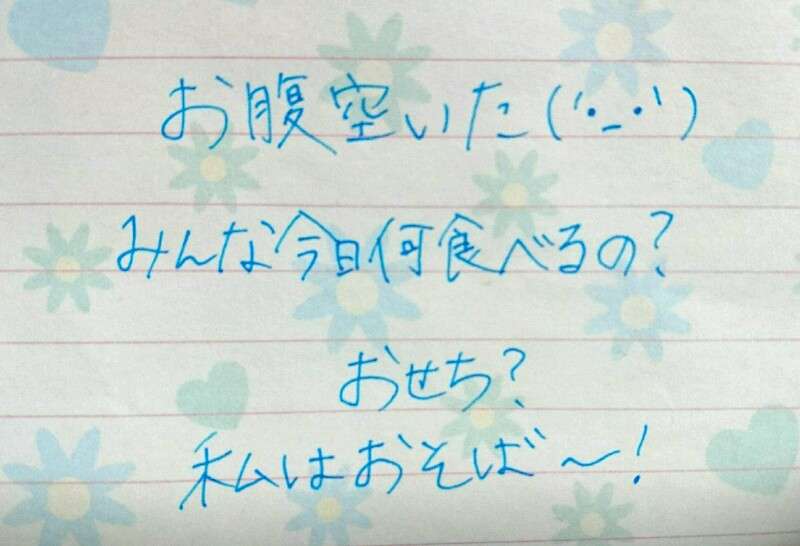 お腹空いた('･_･')
みんな今日何食べるの?
おせち?
私はおそば～!